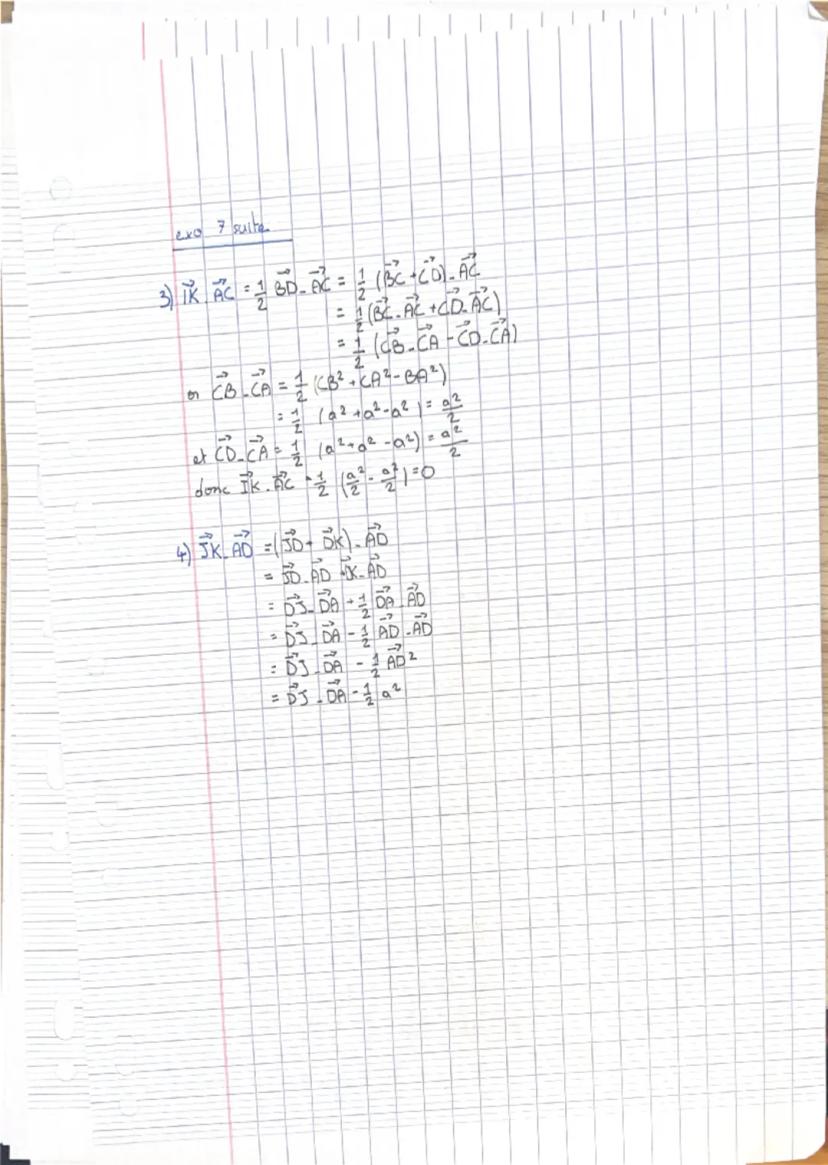 exo 7 suite
3) $\vec{IK}.\vec{AC} = \frac{1}{2} \vec{BD}.\vec{AC} = \frac{1}{2} (\vec{BC} + \vec{CD}).\vec{AC}$
$= \frac{1}{2} (\vec{BC}.\vec{AC} + \vec{CD}.\vec{AC})$
$= \frac{1}{2} (\vec{CB}.\vec{CA} - \vec{CD}.\vec{CA})$
or $\vec{CB}.\vec{CA} = \frac{1}{2} (CB^2 + CA^2 - BA^2)$
$= \frac{1}{2} (a^2 + a^2 - a^2) = \frac{a^2}{2}$
et $\vec{CD}.\vec{CA} = \frac{1}{2} (a^2 + a^2 - a^2) = \frac{a^2}{2}$
donc $\vec{IK}.\vec{AC} = \frac{1}{2} (\frac{a^2}{2} - \frac{a^2}{2}) = 0$
4) $\vec{JK}.\vec{AD} = (\vec{JD} + \vec{DK}).\vec{AD}$
$= \vec{JD}.\vec{AD} + K.\vec{AD}$
$= \vec{DJ}.\vec{DA} + \frac{1}{2} \vec{DA}.\vec{AD}$
$= \vec{DJ}.\vec{DA} - \frac{1}{2} \vec{AD}.\vec{AD}$
$= \vec{DJ}.\vec{DA} - \frac{1}{2} \vec{AD}^2$
$= \vec{DJ}.\vec{DA} - \frac{1}{2} a^2$